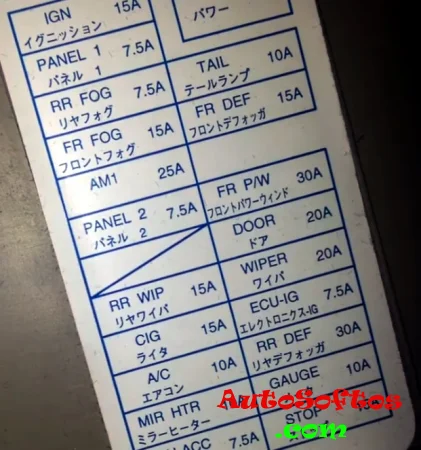 IGN 15A
イグニッション
パワー
PANEL 1 7.5A
パネル 1
TAIL 10A
テールランプ
RR FOG 7.5A
リヤフォグ
FR DEF 15A
フロントデフォッガ
FR FOG 15A
フロントフォグ
AM1 25A
FR P/W 30A
フロントパワーウィンド
PANEL 2 7.5A
パネル 2
DOOR 20A
ドア
WIPER 20A
ワイパ
RR WIP 15A
リヤワイパ
ECU-IG 7.5A
エレクトロニクス-IG
CIG 15A
ライタ
RR DEF 30A
リヤデフォッガ
A/C 10A
エアコン
GAUGE 10A
MIR HTR
ミラーヒーター
STOP
ACC 7.5A
AutoSoftos
.com